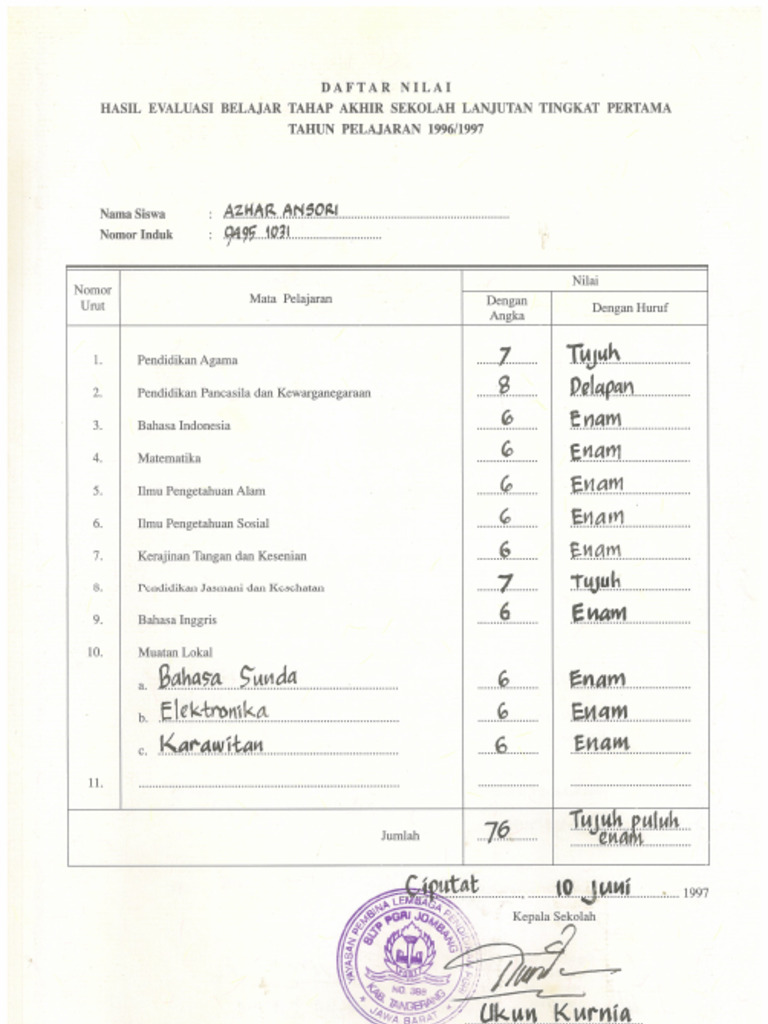 DAFTAR NILAI
HASIL EVALUASI BELAJAR TAHAP AKHIR SEKOLAH LANJUTAN TINGKAT PERTAMA
TAHUN PELAJARAN 1996/1997
Nama Siswa : AZHAR ANSORI
Nomor Induk : 9495 1031
Nomor Urut Mata Pelajaran Nilai
Dengan Angka Dengan Huruf
1. Pendidikan Agama 7 Tujuh
2. Pendidikan Pancasila dan Kewarganegaraan 8 Delapan
3. Bahasa Indonesia 6 Enam
4. Matematika 6 Enam
5. Ilmu Pengetahuan Alam 6 Enam
6. Ilmu Pengetahuan Sosial 6 Enam
7. Kerajinan Tangan dan Kesenian 6 Enam
8. Pendidikan Jasmani dan Kesehatan 7 Tujuh
9. Bahasa Inggris 6 Enam
10. Muatan Lokal
a. Bahasa Sunda 6 Enam
b. Elektronika 6 Enam
c. Karawitan 6 Enam
11.
Jumlah 76 Tujuh puluh enam
Ciputat, 10 Juni 1997
Kepala Sekolah
YAYASAN PEMBINA LEMBAGA
SLTP PGRI JOMBANG
KAB. TANGERANG
JAWA BARAT
Ukun Kurnia